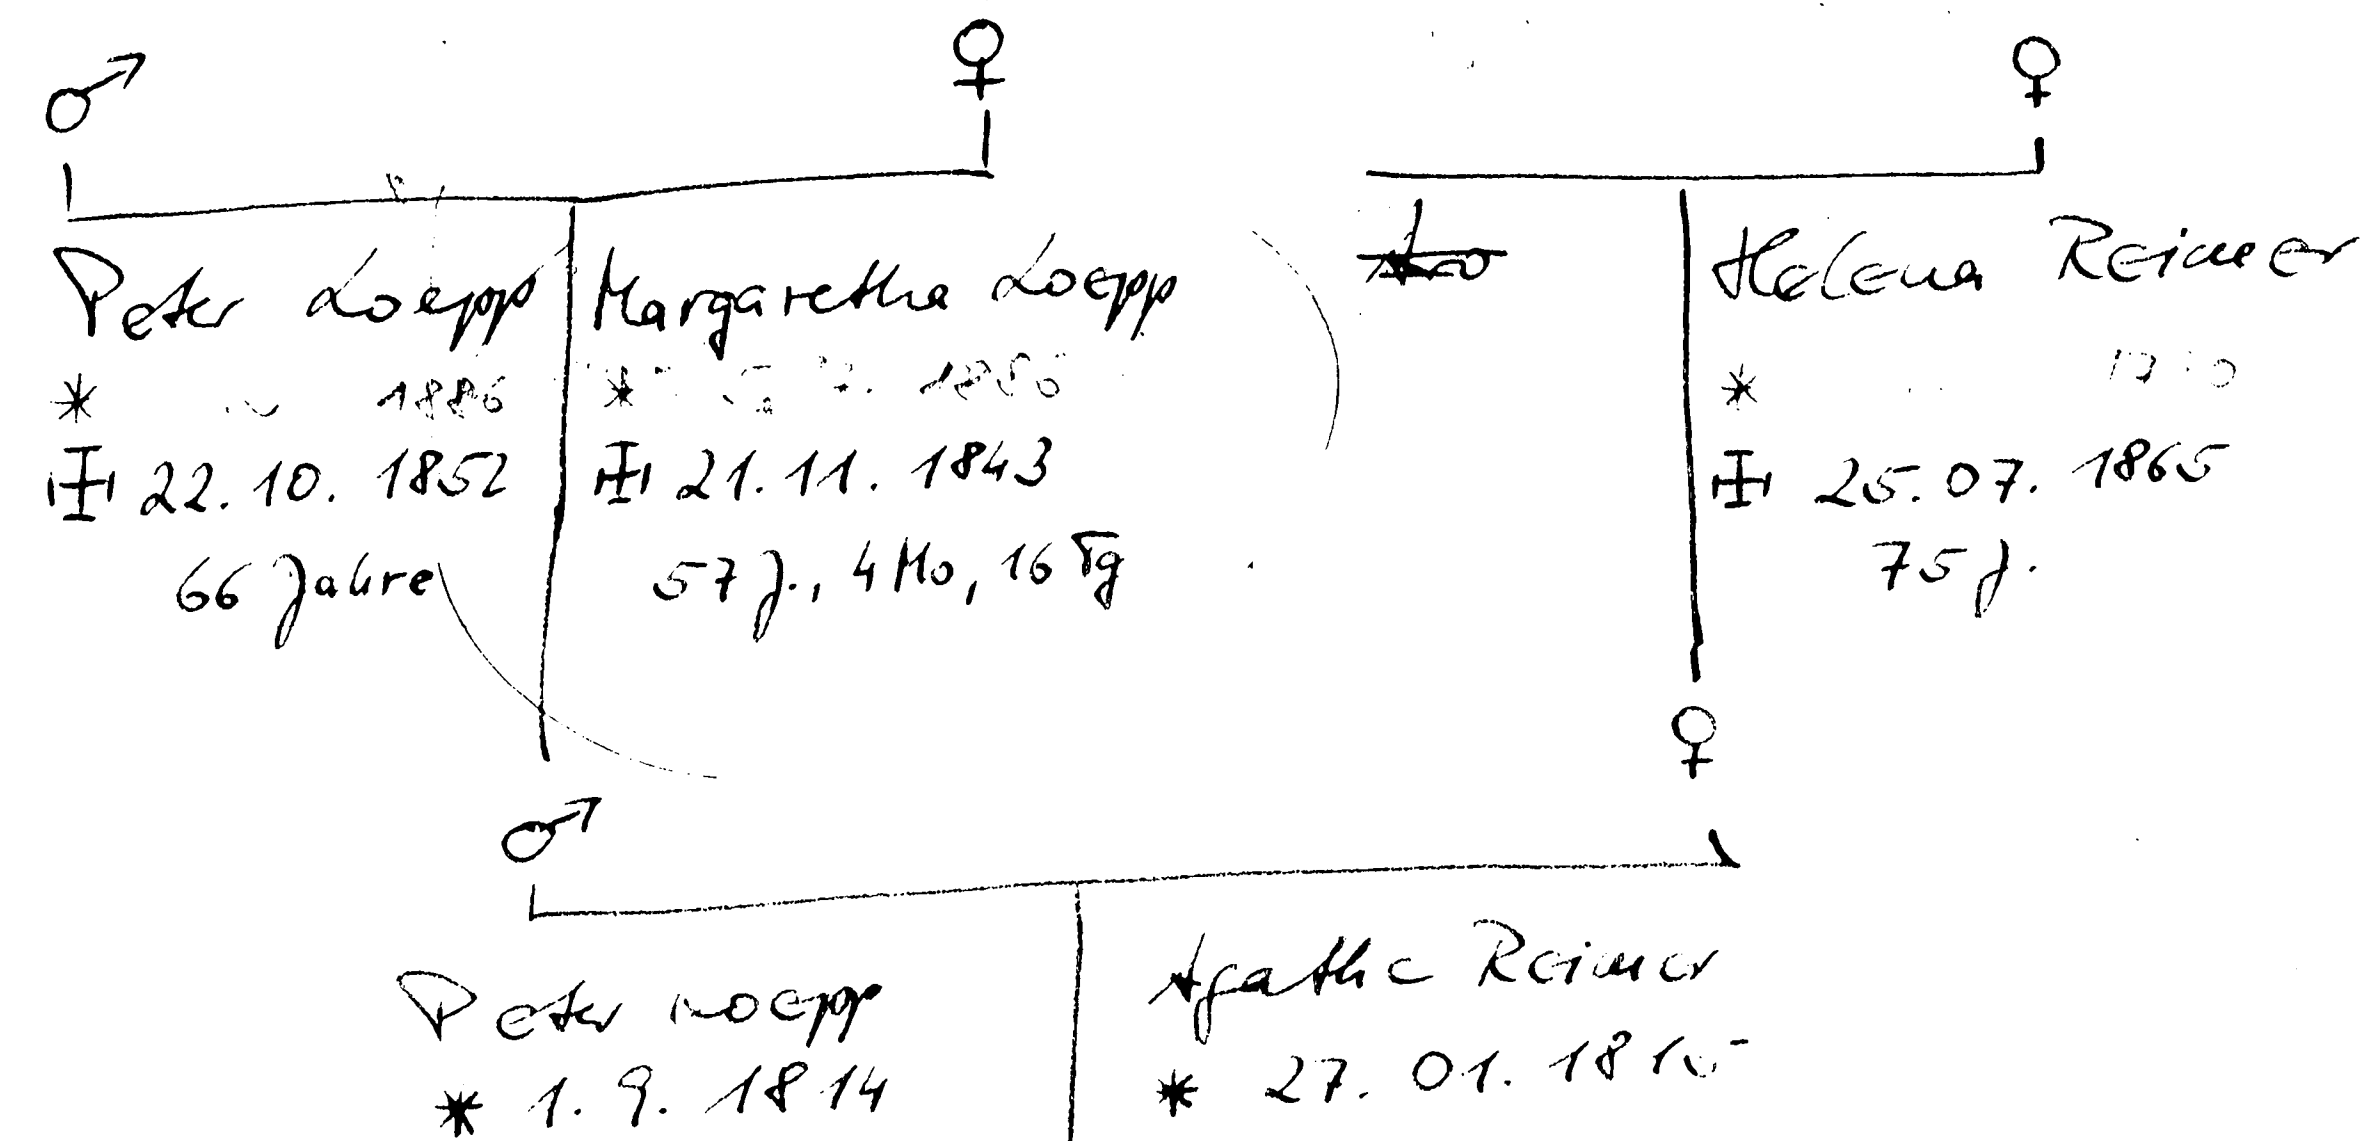 ♂ ♀ ♀
Peter Loepp
* 1886
22.10. 1852
66 Jahre
Margaretha Loepp
*
21.11. 1843
57 J., 4 Mo, 16 Tg
Helena Reimer
*
25.07. 1865
75 J.
♂ ♀
Peter Loepp
* 1.9. 1814
Agathe Reimer
* 27. 01. 1815